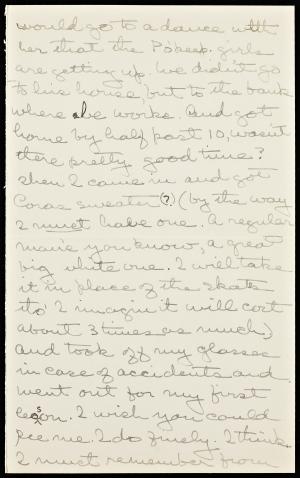 would go to a dance with
her that the Po'keep. girls
are getting up. We didn't go
to his house, but to the bank
where he works. And got
home by half past 10, wasn't
there pretty good time?
Then I came in and got
Coras sweater (?) (by the way
I must have one. A regular
man's you know, a great
big white one. I will take
it in place of the skates
tho' I imagin it will cost
about 3 times as much)
and took off my glasses
in case of accidents and
went out for my first
lesson. I wish you could
see me. I do finely. I think
I must remember from